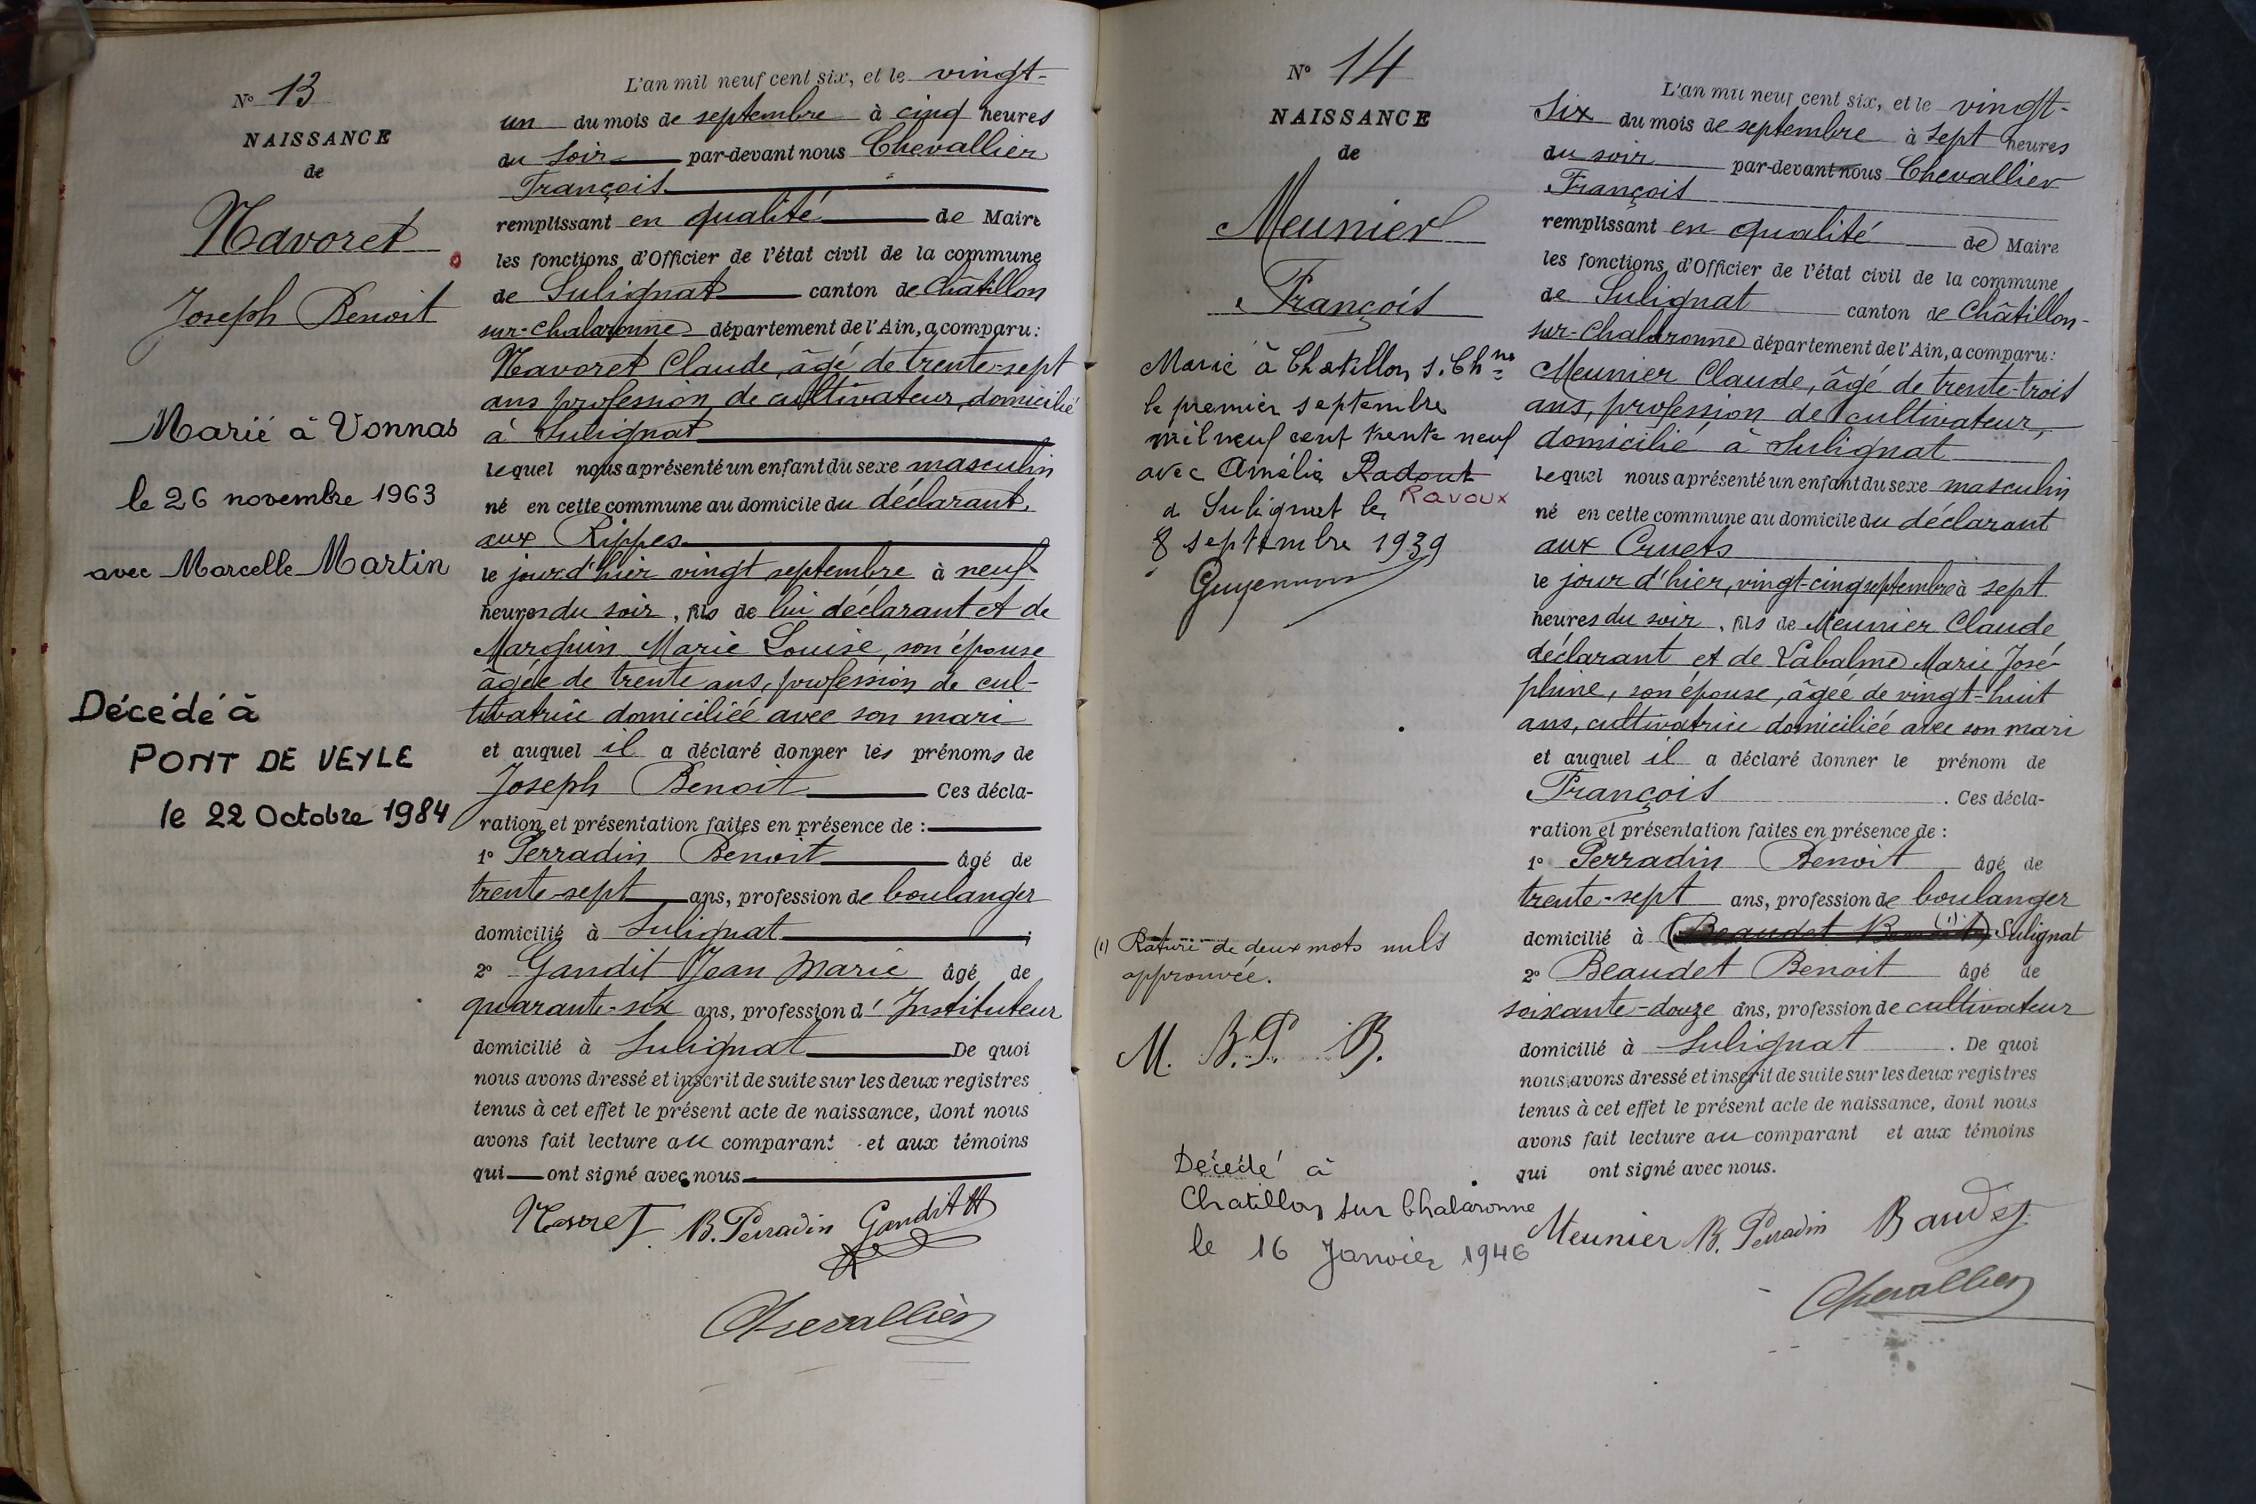 N° 13
NAISSANCE
de
Navoret
Joseph Benoit
Marié à Vonnas
le 26 novembre 1963
avec Marcelle Martin
Décédé à
PONT DE VEYLE
le 22 Octobre 1984
L'an mil neuf cent six, et le vingt-
un du mois de septembre à cinq heures
du soir par-devant nous Chevallier
François
remplissant en qualité de Maire
les fonctions d'Officier de l'état civil de la commune
de Sulignat canton de Châtillon
sur-Chalaronne département de l'Ain, a comparu:
Navoret Claude, âgé de trente-sept
ans profession de cultivateur, domicilié
à Sulignat
lequel nous a présenté un enfant du sexe masculin
né en cette commune au domicile du déclarant,
aux Rippes
le jour d'hier vingt septembre à neuf
heures du soir, fils de lui déclarant et de
Marguin Marie Louise, son épouse
âgée de trente ans, profession de cul-
tivatrice domiciliée avec son mari
et auquel il a déclaré donner les prénoms de
Joseph Benoit Ces décla-
ration et présentation faites en présence de :
1° Perradin Benoit âgé de
trente-sept ans, profession de boulanger
domicilié à Sulignat ;
2° Gandit Jean Marie âgé de
quarante-six ans, profession d'Instituteur
domicilié à Sulignat De quoi
nous avons dressé et inscrit de suite sur les deux registres
tenus à cet effet le présent acte de naissance, dont nous
avons fait lecture au comparant et aux témoins
qui ont signé avec nous
Navoret B. Perradin Gandit
Chevallier
N° 14
NAISSANCE
de
Meunier
François
Marié à Chatillon s. Chne
le premier septembre
mil neuf cent trente neuf
avec Amélie Radout
Ravoux
à Sulignat le
8 septembre 1939
Guyennon
(1) Rature de deux mots nuls
approuvée.
M. B.P. B.
Décédé à
Chatillon sur Chalaronne
le 16 Janvier 1946
L'an mil neuf cent six, et le vingt-
six du mois de septembre à sept heures
du soir par-devant nous Chevallier
François
remplissant en qualité de Maire
les fonctions d'Officier de l'état civil de la commune
de Sulignat canton de Châtillon-
sur-Chalaronne département de l'Ain, a comparu:
Meunier Claude, âgé de trente-trois
ans, profession de cultivateur,
domicilié à Sulignat
lequel nous a présenté un enfant du sexe masculin
né en cette commune au domicile du déclarant
aux Cruets
le jour d'hier, vingt-cinq septembre à sept
heures du soir, fils de Meunier Claude
déclarant et de Labalme Marie José-
phine, son épouse, âgée de vingt-huit
ans, cultivatrice domiciliée avec son mari
et auquel il a déclaré donner le prénom de
François . Ces décla-
ration et présentation faites en présence de :
1° Perradin Benoit âgé de
trente-sept ans, profession de boulanger
domicilié à (Beaudet Benoit) (1) Sulignat
2° Beaudet Benoit âgé de
soixante-douze ans, profession de cultivateur
domicilié à Sulignat . De quoi
nous avons dressé et inscrit de suite sur les deux registres
tenus à cet effet le présent acte de naissance, dont nous
avons fait lecture au comparant et aux témoins
qui ont signé avec nous.
Meunier B. Perradin Baudet
Chevallier